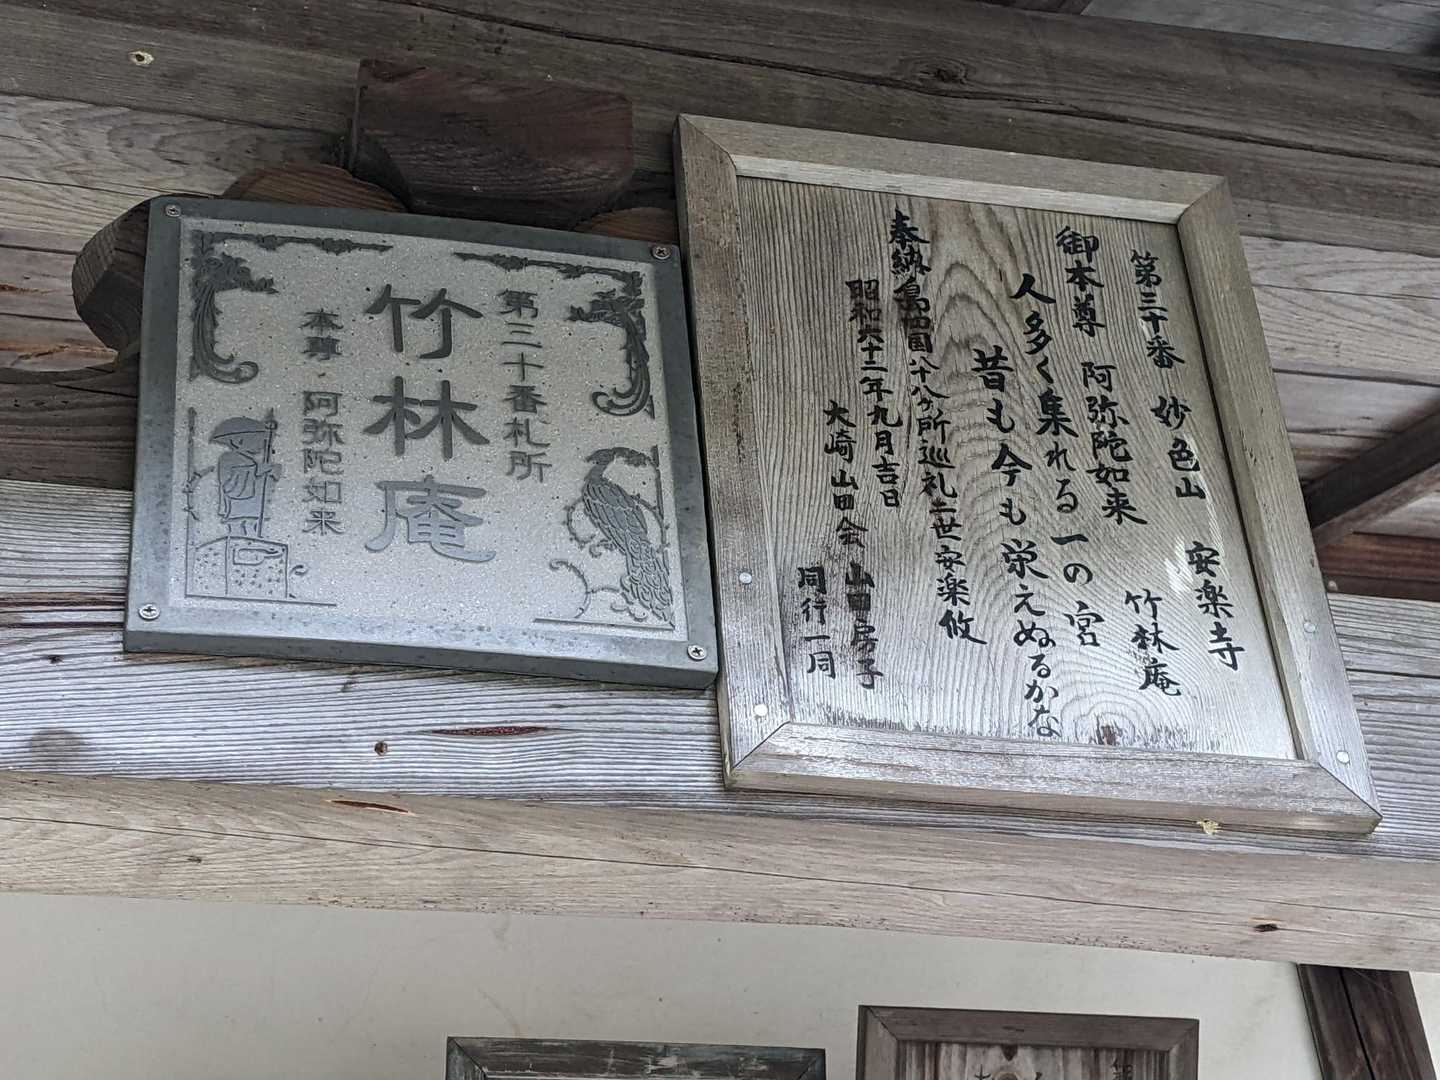 第三十番札所
竹林庵
本尊 阿弥陀如来
第三十番 妙色山 安楽寺
御本尊 阿弥陀如来 竹林庵
人多く集れる一の宮
昔も今も栄えぬるかな
奉納 島四国八十八ヶ所巡礼二世安楽攸
昭和六十二年九月吉日
大崎山田会 山田房子
同行一同